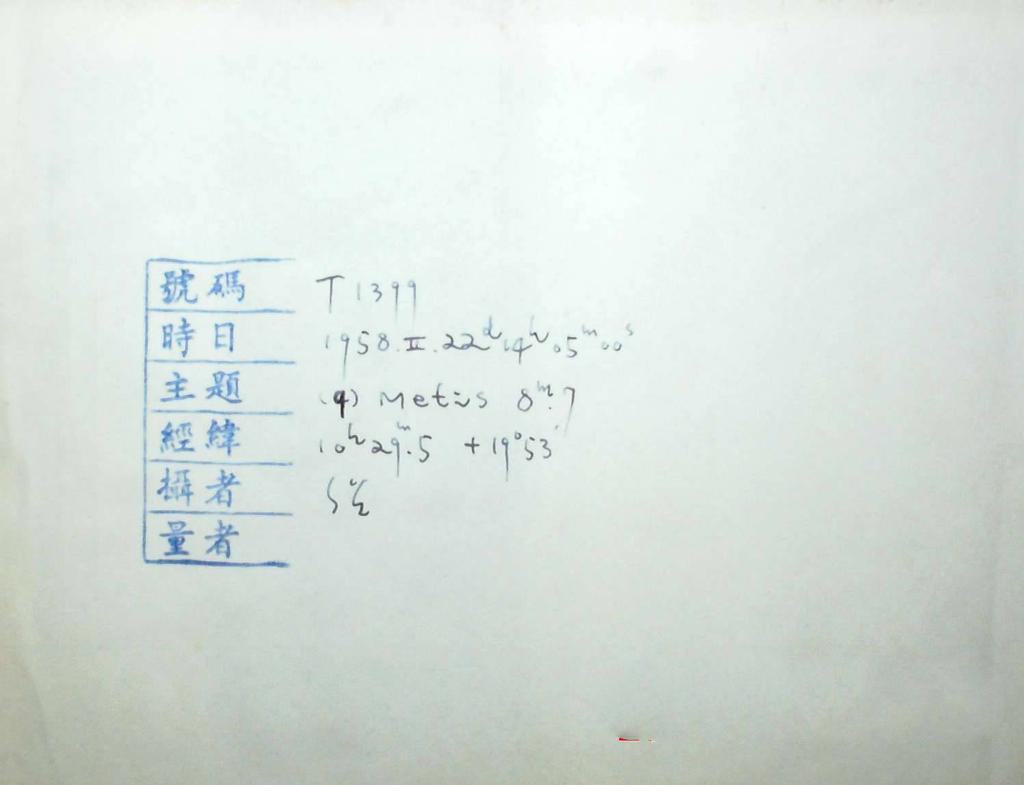 號碼 T 1399
時日 1958.II.22ᵈ14ʰ05ᵐ00ˢ
主題 (9) Metis 8ᵐ.7
經緯 10ʰ29ᵐ.5 +19°53'
攝者
量者